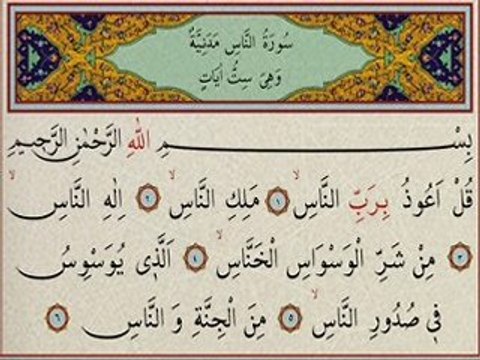 سُورَةُ النَّاسِ مَدَنِيَّةٌ
وَهِيَ سِتُّ اٰيَاتٍ
بِسْمِ اللّٰهِ الرَّحْمٰنِ الرَّحِيمِ
قُلْ اَعُوذُ بِرَبِّ النَّاسِۙ ﴿١﴾ مَلِكِ النَّاسِۙ ﴿٢﴾ اِلٰهِ النَّاسِۙ
﴿٣﴾ مِنْ شَرِّ الْوَسْوَاسِ الْخَنَّاسِۙ ﴿٤﴾ اَلَّذ۪ي يُوَسْوِسُ
ف۪ي صُدُورِ النَّاسِۙ ﴿٥﴾ مِنَ الْجِنَّةِ وَ النَّاسِ ﴿٦﴾